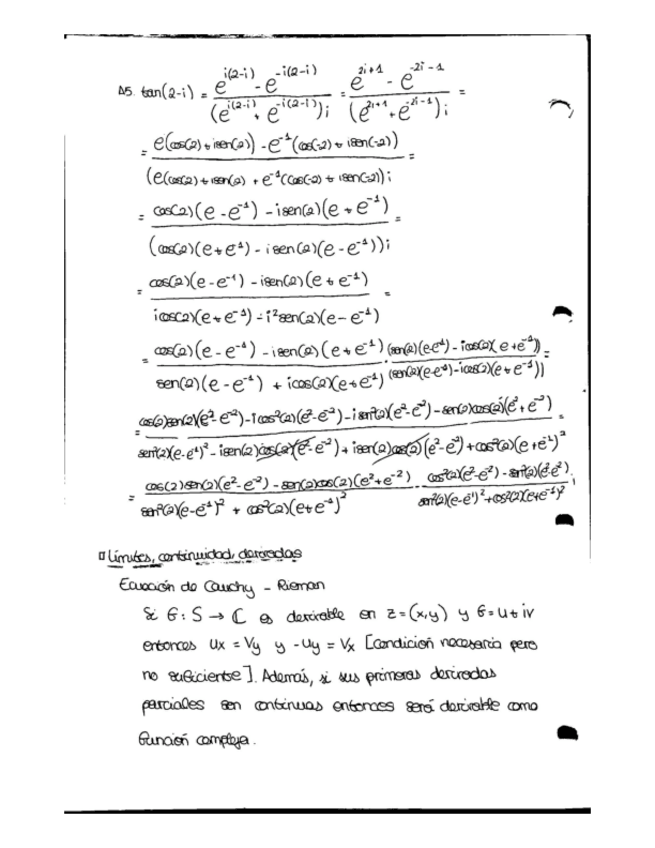 15. tan(2-i) = (e^{i(2-i)} - e^{-i(2-i)}) / ((e^{i(2-i)} + e^{-i(2-i)})i) = (e^{2i+1} - e^{-2i-1}) / ((e^{2i+1} + e^{-2i-1})i) =
= (e(cos(2) + isen(2)) - e^{-1}(cos(-2) + isen(-2))) / ((e(cos(2) + isen(2) + e^{-1}(cos(-2) + isen(-2))i) =
= (cos(2)(e - e^{-1}) - isen(2)(e + e^{-1})) / ((cos(2)(e + e^{-1}) - isen(2)(e - e^{-1}))i) =
= (cos(2)(e - e^{-1}) - isen(2)(e + e^{-1})) / (icos(2)(e + e^{-1}) - i²sen(2)(e - e^{-1})) =
= (cos(2)(e - e^{-1}) - isen(2)(e + e^{-1})) / (sen(2)(e - e^{-1}) + icos(2)(e + e^{-1})) · (sen(2)(e - e^{-1}) - icos(2)(e + e^{-1})) / (sen(2)(e - e^{-1}) - icos(2)(e + e^{-1})) =
= (cos(2)sen(2)(e² - e^{-2}) - icos²(2)(e² - e^{-2}) - isen²(2)(e² - e^{-2}) - sen(2)cos(2)(e² + e^{-2})) / (sen²(2)(e - e^{-1})² - isen(2)cos(2)(e² - e^{-2}) + isen(2)cos(2)(e² - e^{-2}) + cos²(2)(e + e^{-1})²) =
= (cos(2)sen(2)(e² - e^{-2}) - sen(2)cos(2)(e² + e^{-2})) / (sen²(2)(e - e^{-1})² + cos²(2)(e + e^{-1})²) - (cos²(2)(e² - e^{-2}) - sen²(2)(e² - e^{-2})) / (sen²(2)(e - e^{-1})² + cos²(2)(e + e^{-1})²) i
Límites, continuidad, derivadas
Ecuación de Cauchy - Rieman
Si f: S → ℂ es derivable en z = (x,y) y f = u + iv
entonces Ux = Vy y -Uy = Vx [Condición necesaria pero
no suficiente]. Además, si sus primeras derivadas
parciales son continuas entonces será derivable como
función compleja.